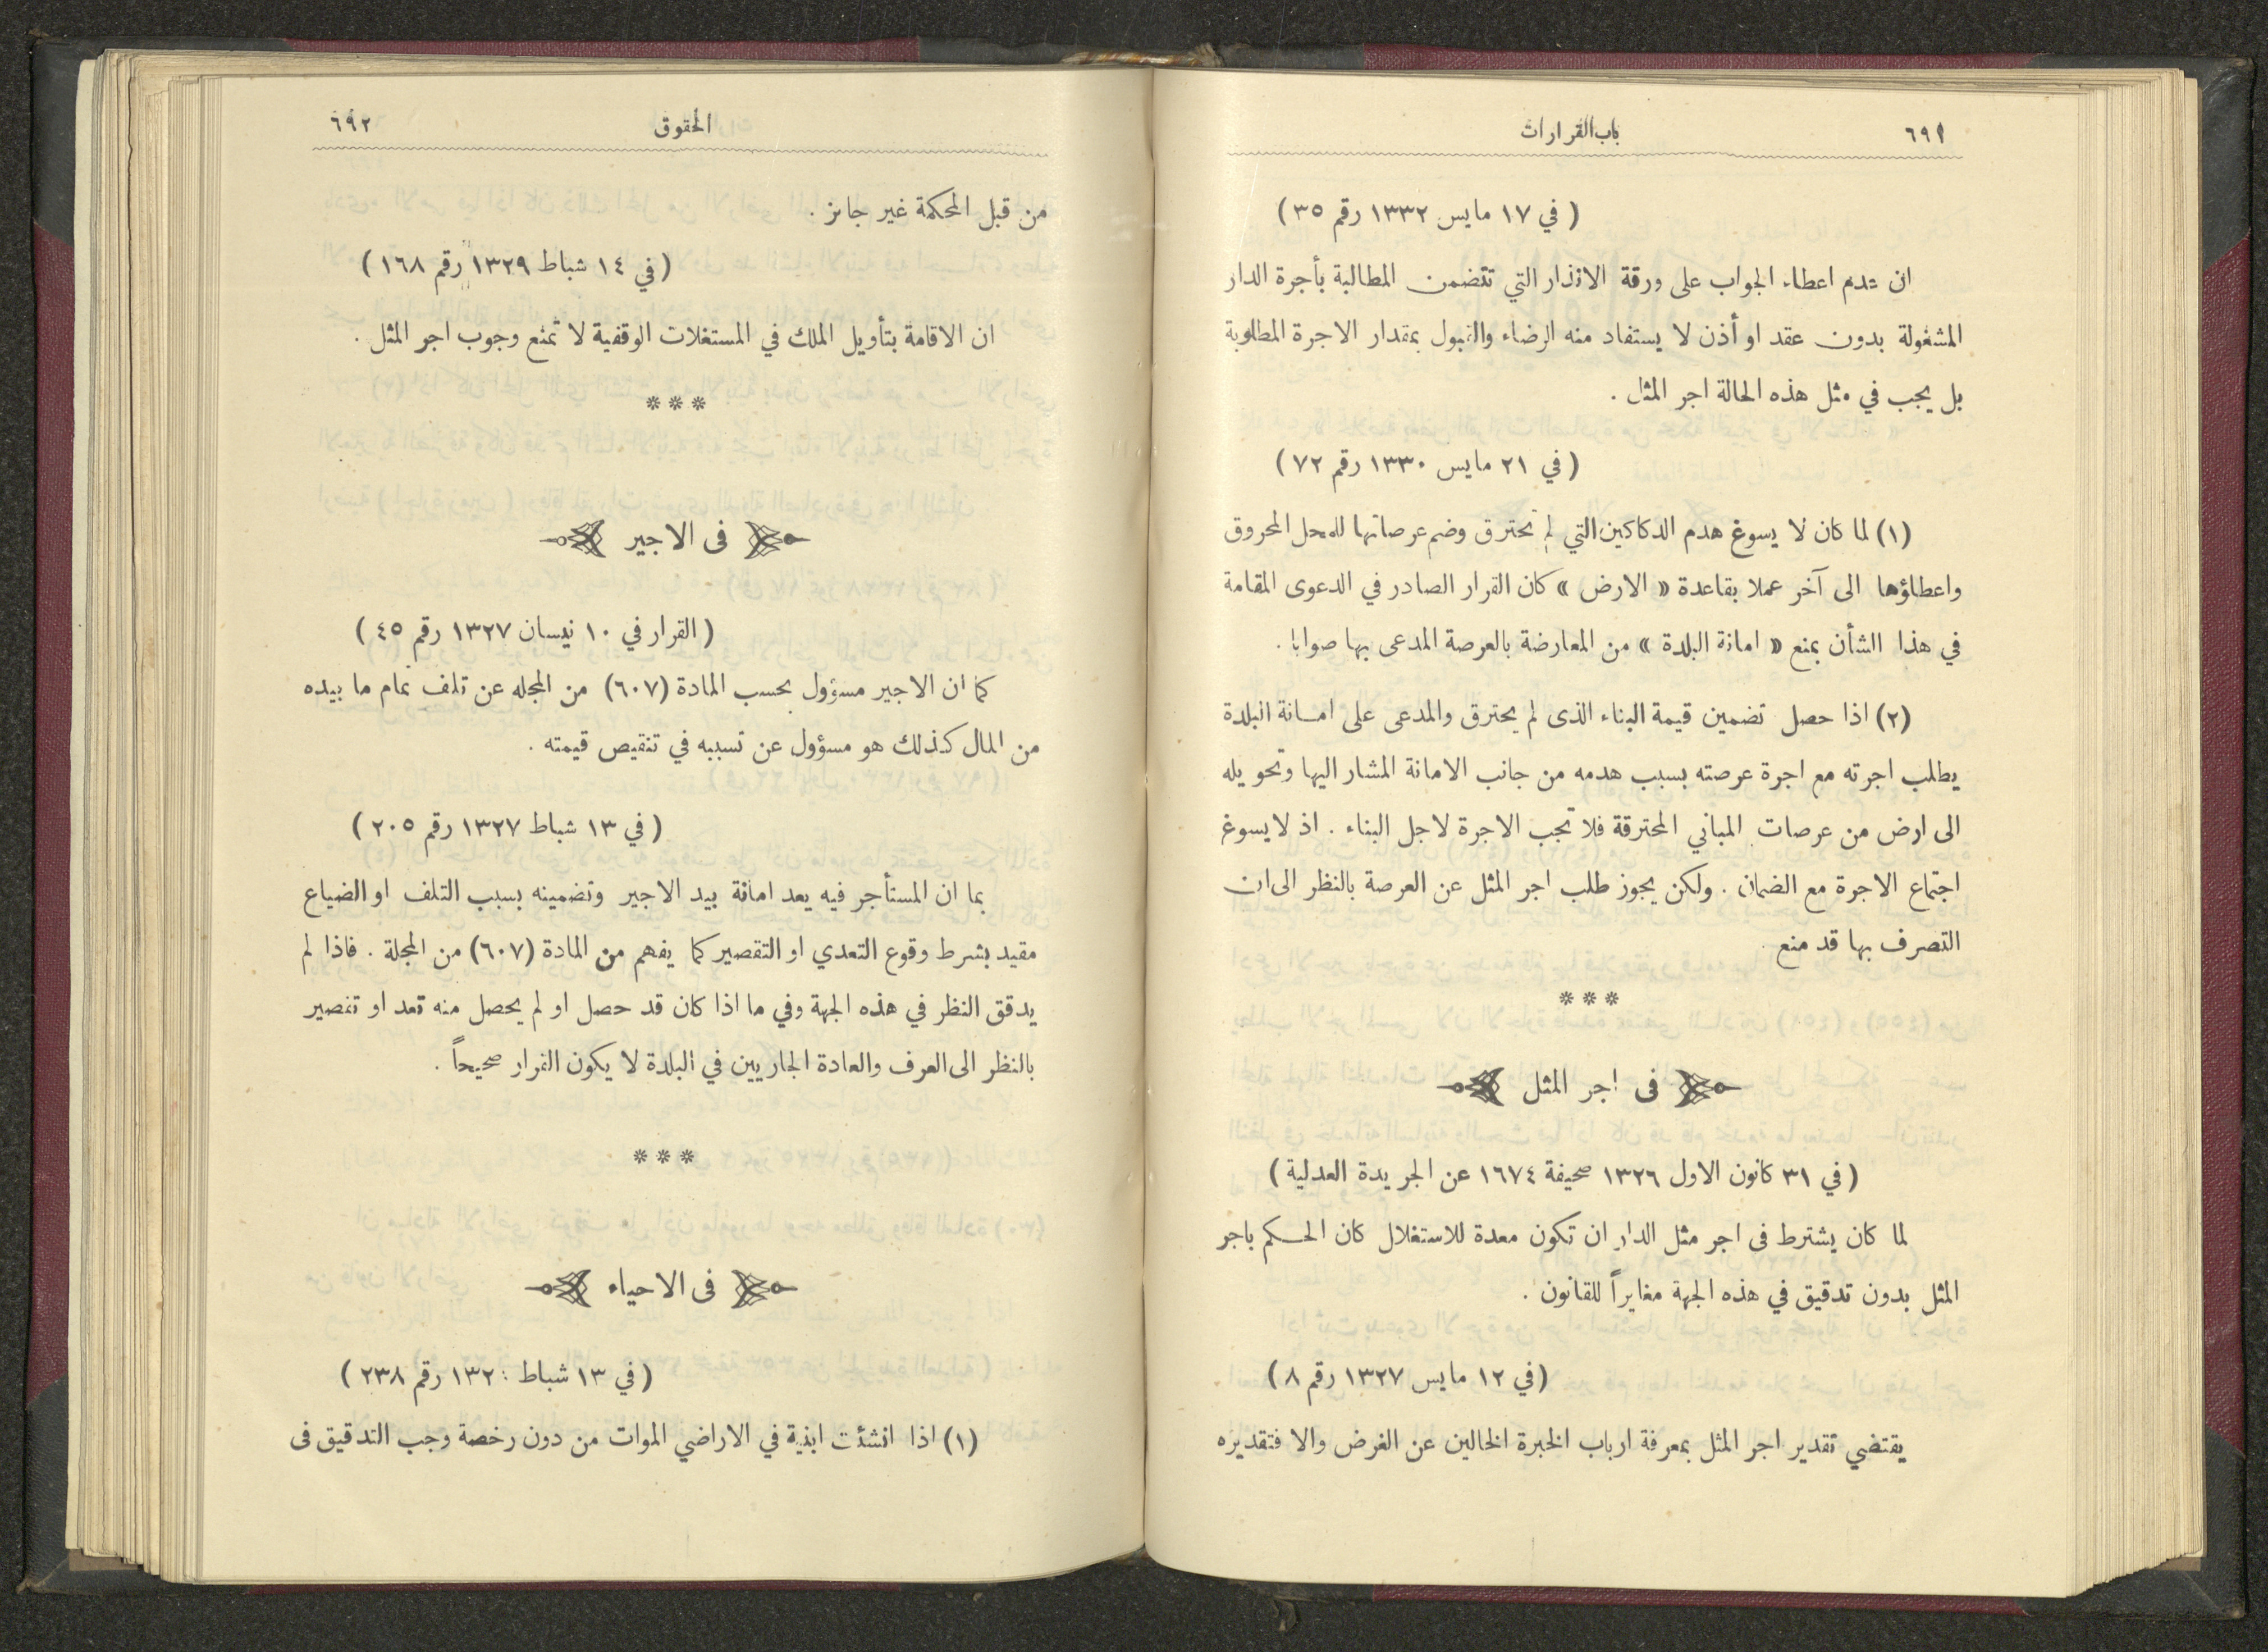 ٦٩١
باب القرارات
(في ١٧ مايس ١٣٣٢ رقم ٣٥)
ان عدم اعطاء الجواب على ورقة الانذار التي تتضمن المطالبة بأجرة الدار
المشغولة بدون عقد او أذن لا يستفاد منه الرضاء والقبول بمقدار الاجرة المطلوبة
بل يجب في مثل هذه الحالة اجر المثل .
(في ٢١ مايس ١٣٣٠ رقم ٧٢)
(١) لما كان لا يسوغ هدم الدكاكين التي لم تحترق وضم عرصاتها للمحل المحروق
واعطاؤها الى آخر عملا بقاعدة « الارض » كان القرار الصادر في الدعوى المقامة
في هذا الشأن بمنع « امانة البلدة » من المعارضة بالعرصة المدعى بها صوابا .
(٢) اذا حصل تضمين قيمة البناء الذى لم يحترق والمدعى على امانة البلدة
يطلب اجرته مع اجرة عرصته بسبب هدمه من جانب الامانة المشار اليها وتحويله
الى ارض من عرصات المباني المحترقة فلا تجب الاجرة لاجل البناء . اذ لا يسوغ
اجتماع الاجرة مع الضمان . ولكن يجوز طلب اجر المثل عن العرصة بالنظر الى ان
التصرف بها قد منع .
* * *
فى اجر المثل
(في ٣١ كانون الاول ١٣٢٦ صحيفة ١٦٧٤ عن الجريدة العدلية)
لما كان يشترط فى اجر مثل الدار ان تكون معدة للاستغلال كان الحكم باجر
المثل بدون تدقيق في هذه الجهة مغايراً للقانون .
(في ١٢ مايس ١٣٢٧ رقم ٨)
يقتضي تقدير اجر المثل بمعرفة ارباب الخبرة الخالين عن الغرض والا فتقديره
الحقوق
٦٩٢
من قبل المحكمة غير جائز .
(في ١٤ شباط ١٣٢٩ رقم ١٦٨)
ان الاقامة بتأويل الملك في المستغلات الوقفية لا تمنع وجوب اجر المثل .
* * *
فى الاجير
(القرار في ١٠ نيسان ١٣٢٧ رقم ٤٥)
كما ان الاجير مسؤول بحسب المادة (٦٠٧) من المجله عن تلف تمام ما بيده
من المال كذلك هو مسؤول عن تسببه في تنقيص قيمته .
(في ١٣ شباط ١٣٢٧ رقم ٢٠٥)
بما ان المستأجر فيه يعد امانة بيد الاجير وتضمينه بسبب التلف او الضياع
مقيد بشرط وقوع التعدي او التقصير كما يفهم من المادة (٦٠٧) من المجلة . فاذا لم
يدقق النظر في هذه الجهة وفي ما اذا كان قد حصل او لم يحصل منه تعد او تقصير
بالنظر الى العرف والعادة الجاريين في البلدة لا يكون القرار صحيحاً .
* * *
فى الاحياء
(في ١٣ شباط ١٣٢ رقم ٢٣٨)
(١) اذا انشئت ابنية في الاراضي الموات من دون رخصة وجب التدقيق فى